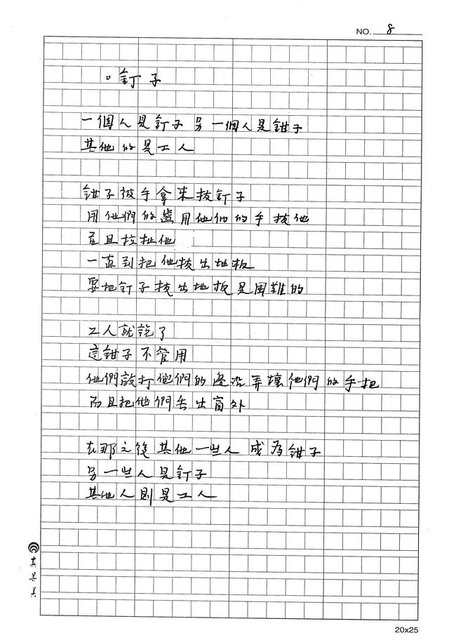 NO. 8
。釘子
一個人是釘子 另一個人是鉗子
其他的是工人
鉗子被手拿來拔釘子
用他們的齒用他們的手拔他
而且拉扯他
一直到把他拔出地板
要把釘子拔出地板是困難的
工人就說了
這鉗子不管用
他們敲打他們的 弄壞他們的手把
而且把他們丟出窗外
在那之後 其他一些人 成為鉗子
另一些人是釘子
其他人則是工人
20x25